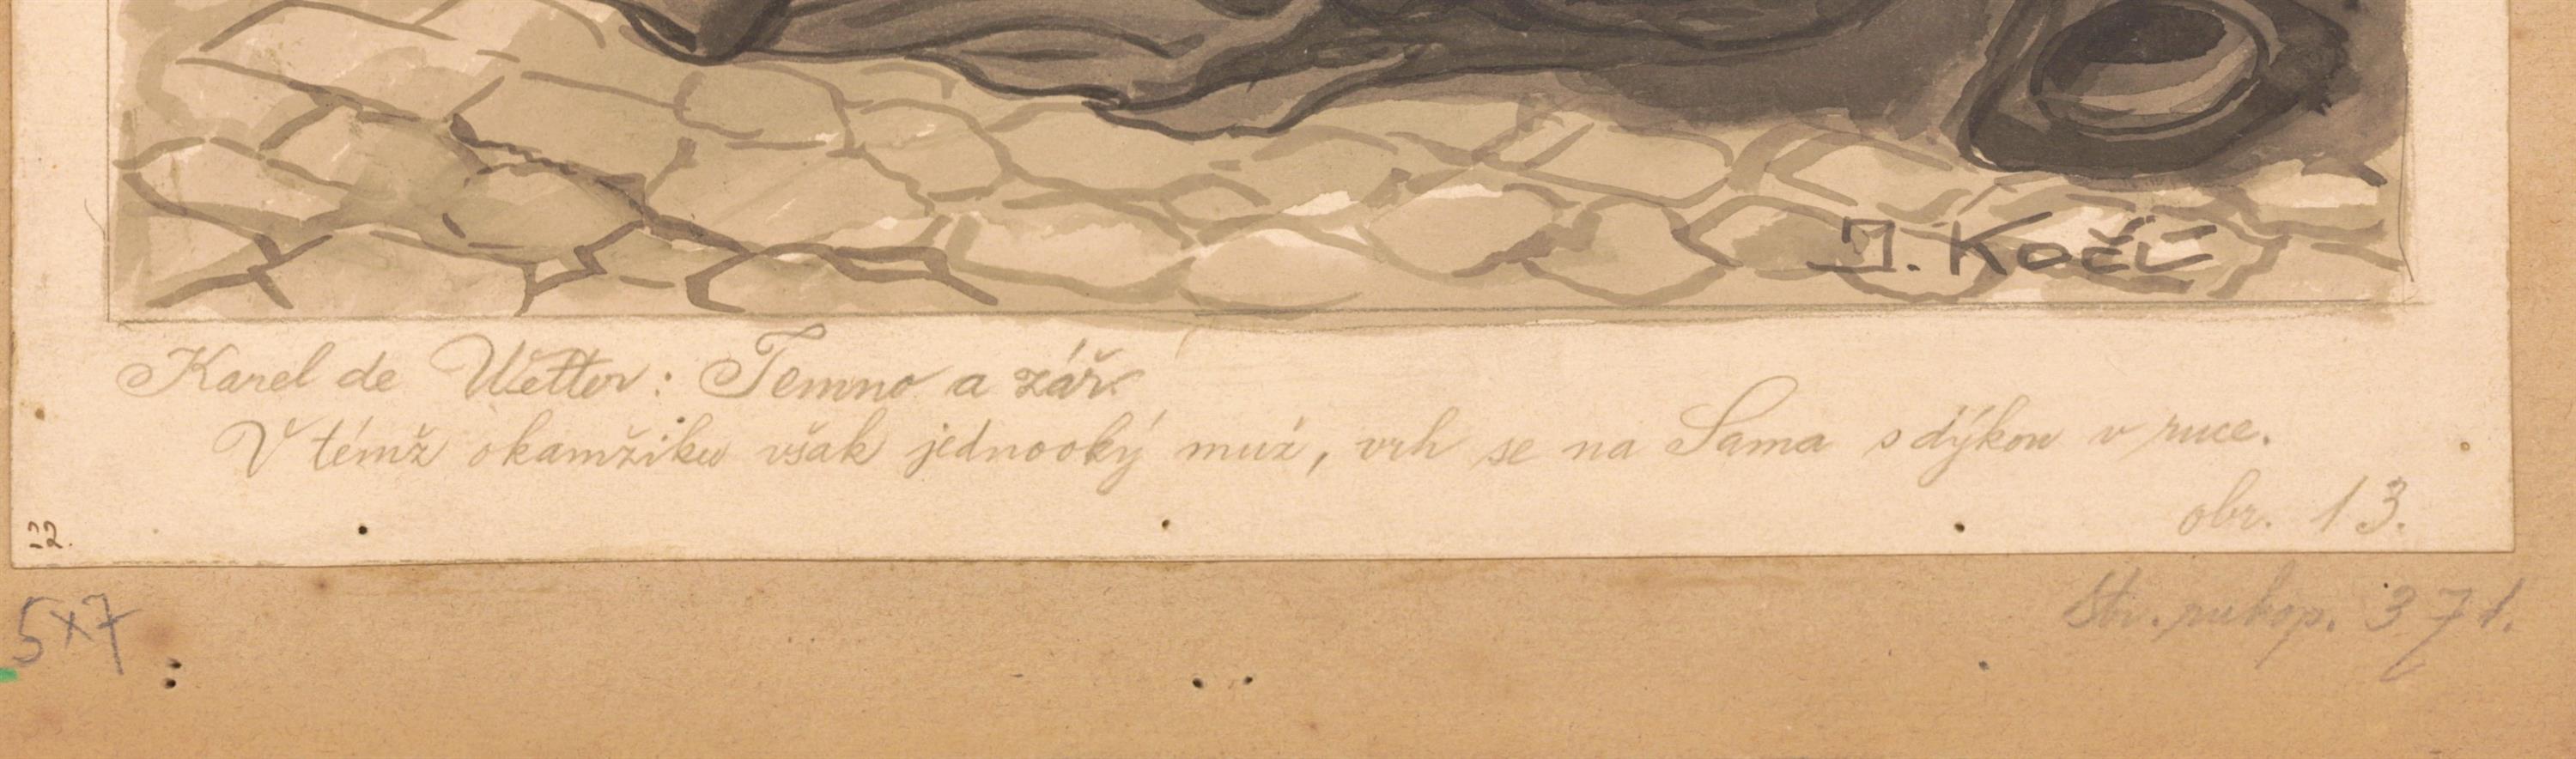 J. Kočí
Karel de Wetter: Temno a zář.
V témž okamžiku však jednooký muž, vrh se na Sama s dýkou v ruce.
obr. 13.
22.
5x7
Str. rukop. 371.